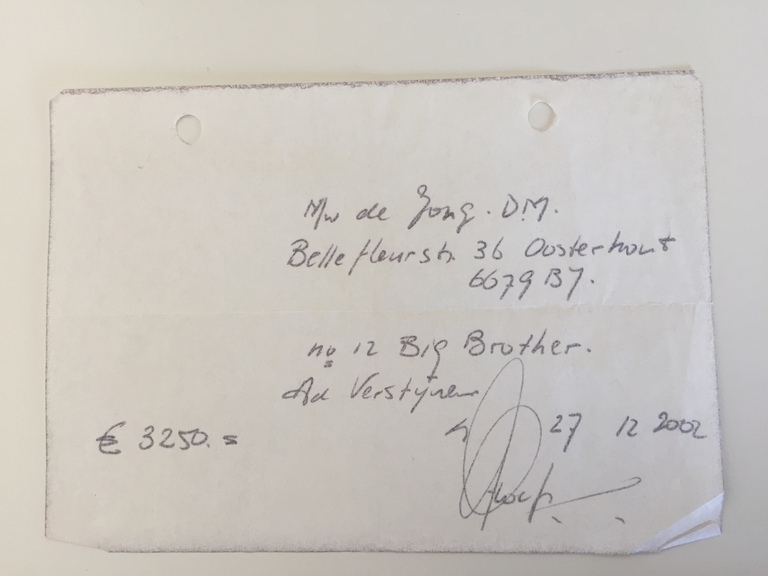 Mw de Jong. D.M.
Bellefleurstr. 36 Oosterhout
6679 BJ.
no 12 Big Brother.
Ad Verstijnen
€ 3250.=
27 12 2002